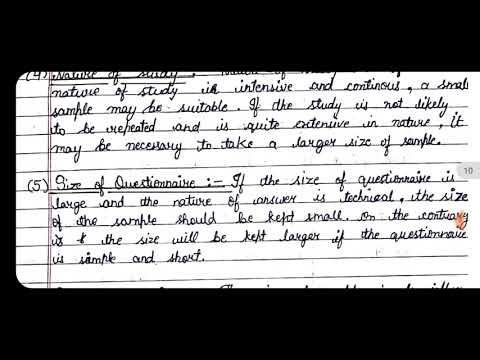 (4) Nature of study :-
nature of study is intensive and continous, a small
sample may be suitable. If the study is not likely
to be repeated and is quite extensive in nature, it
may be necessary to take a larger size of sample.
(5) Size of Questionnaire :- If the size of questionnaire is
large and the nature of answer is technical, the size
of the sample should be kept small. On the contrary
the size will be kept larger if the questionnaire
is simple and short.
10